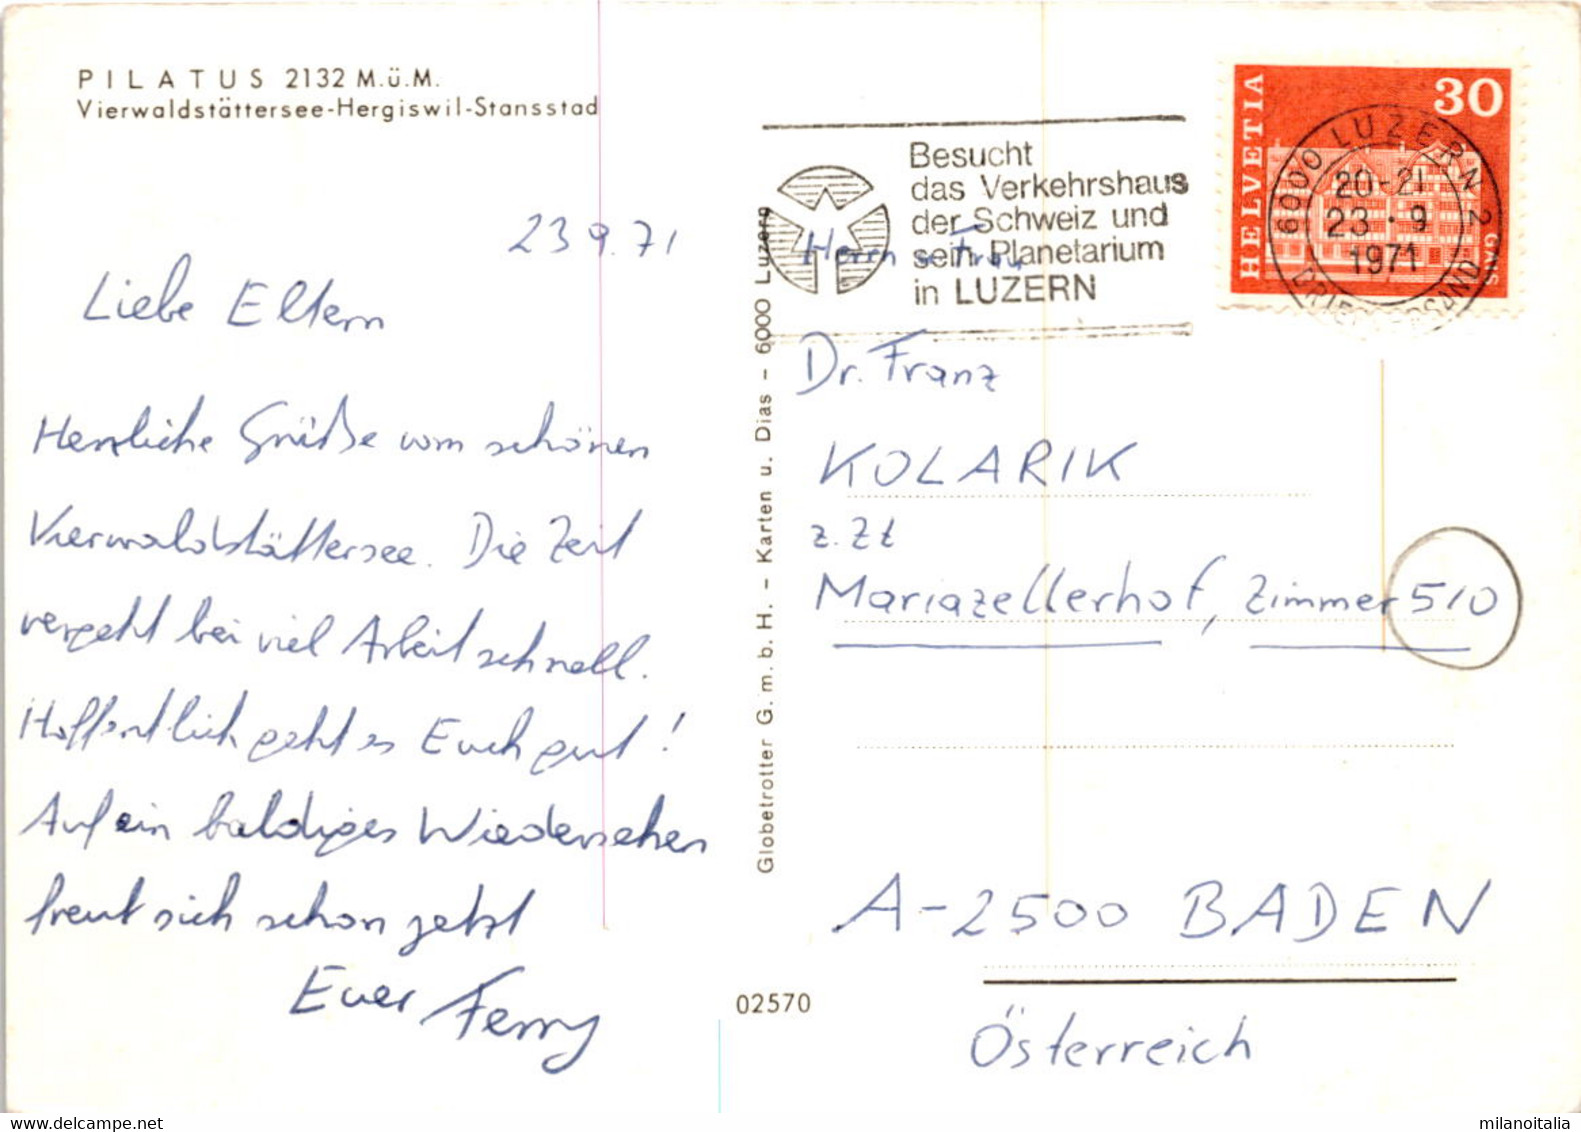 PILATUS 2132 M.ü.M.
Vierwaldstättersee-Hergiswil-Stansstad
23 9. 71
Liebe Eltern
Herzliche Grüße vom schönen
Vierwaldstättersee. Die Zeit
vergeht bei viel Arbeit schnell.
Hoffentlich geht es Euch gut!
Auf ein baldiges Wiedersehen
freut sich schon jetzt
Euer Ferry
Globetrotter G.m.b.H. - Karten u. Dias - 6000 Luzern
02570
Besucht
das Verkehrshaus
der Schweiz und
sein Planetarium
in LUZERN
HELVETIA
30
GAIS
6000 LUZERN 2
20-21
23.9
1971
BRIEFVERSAND
Herrn u. Frau
Dr. Franz
KOLARIK
z. Zt
Mariazellerhof, Zimmer 510
A-2500 BADEN
Österreich
www.delcampe.net
milanoitalia